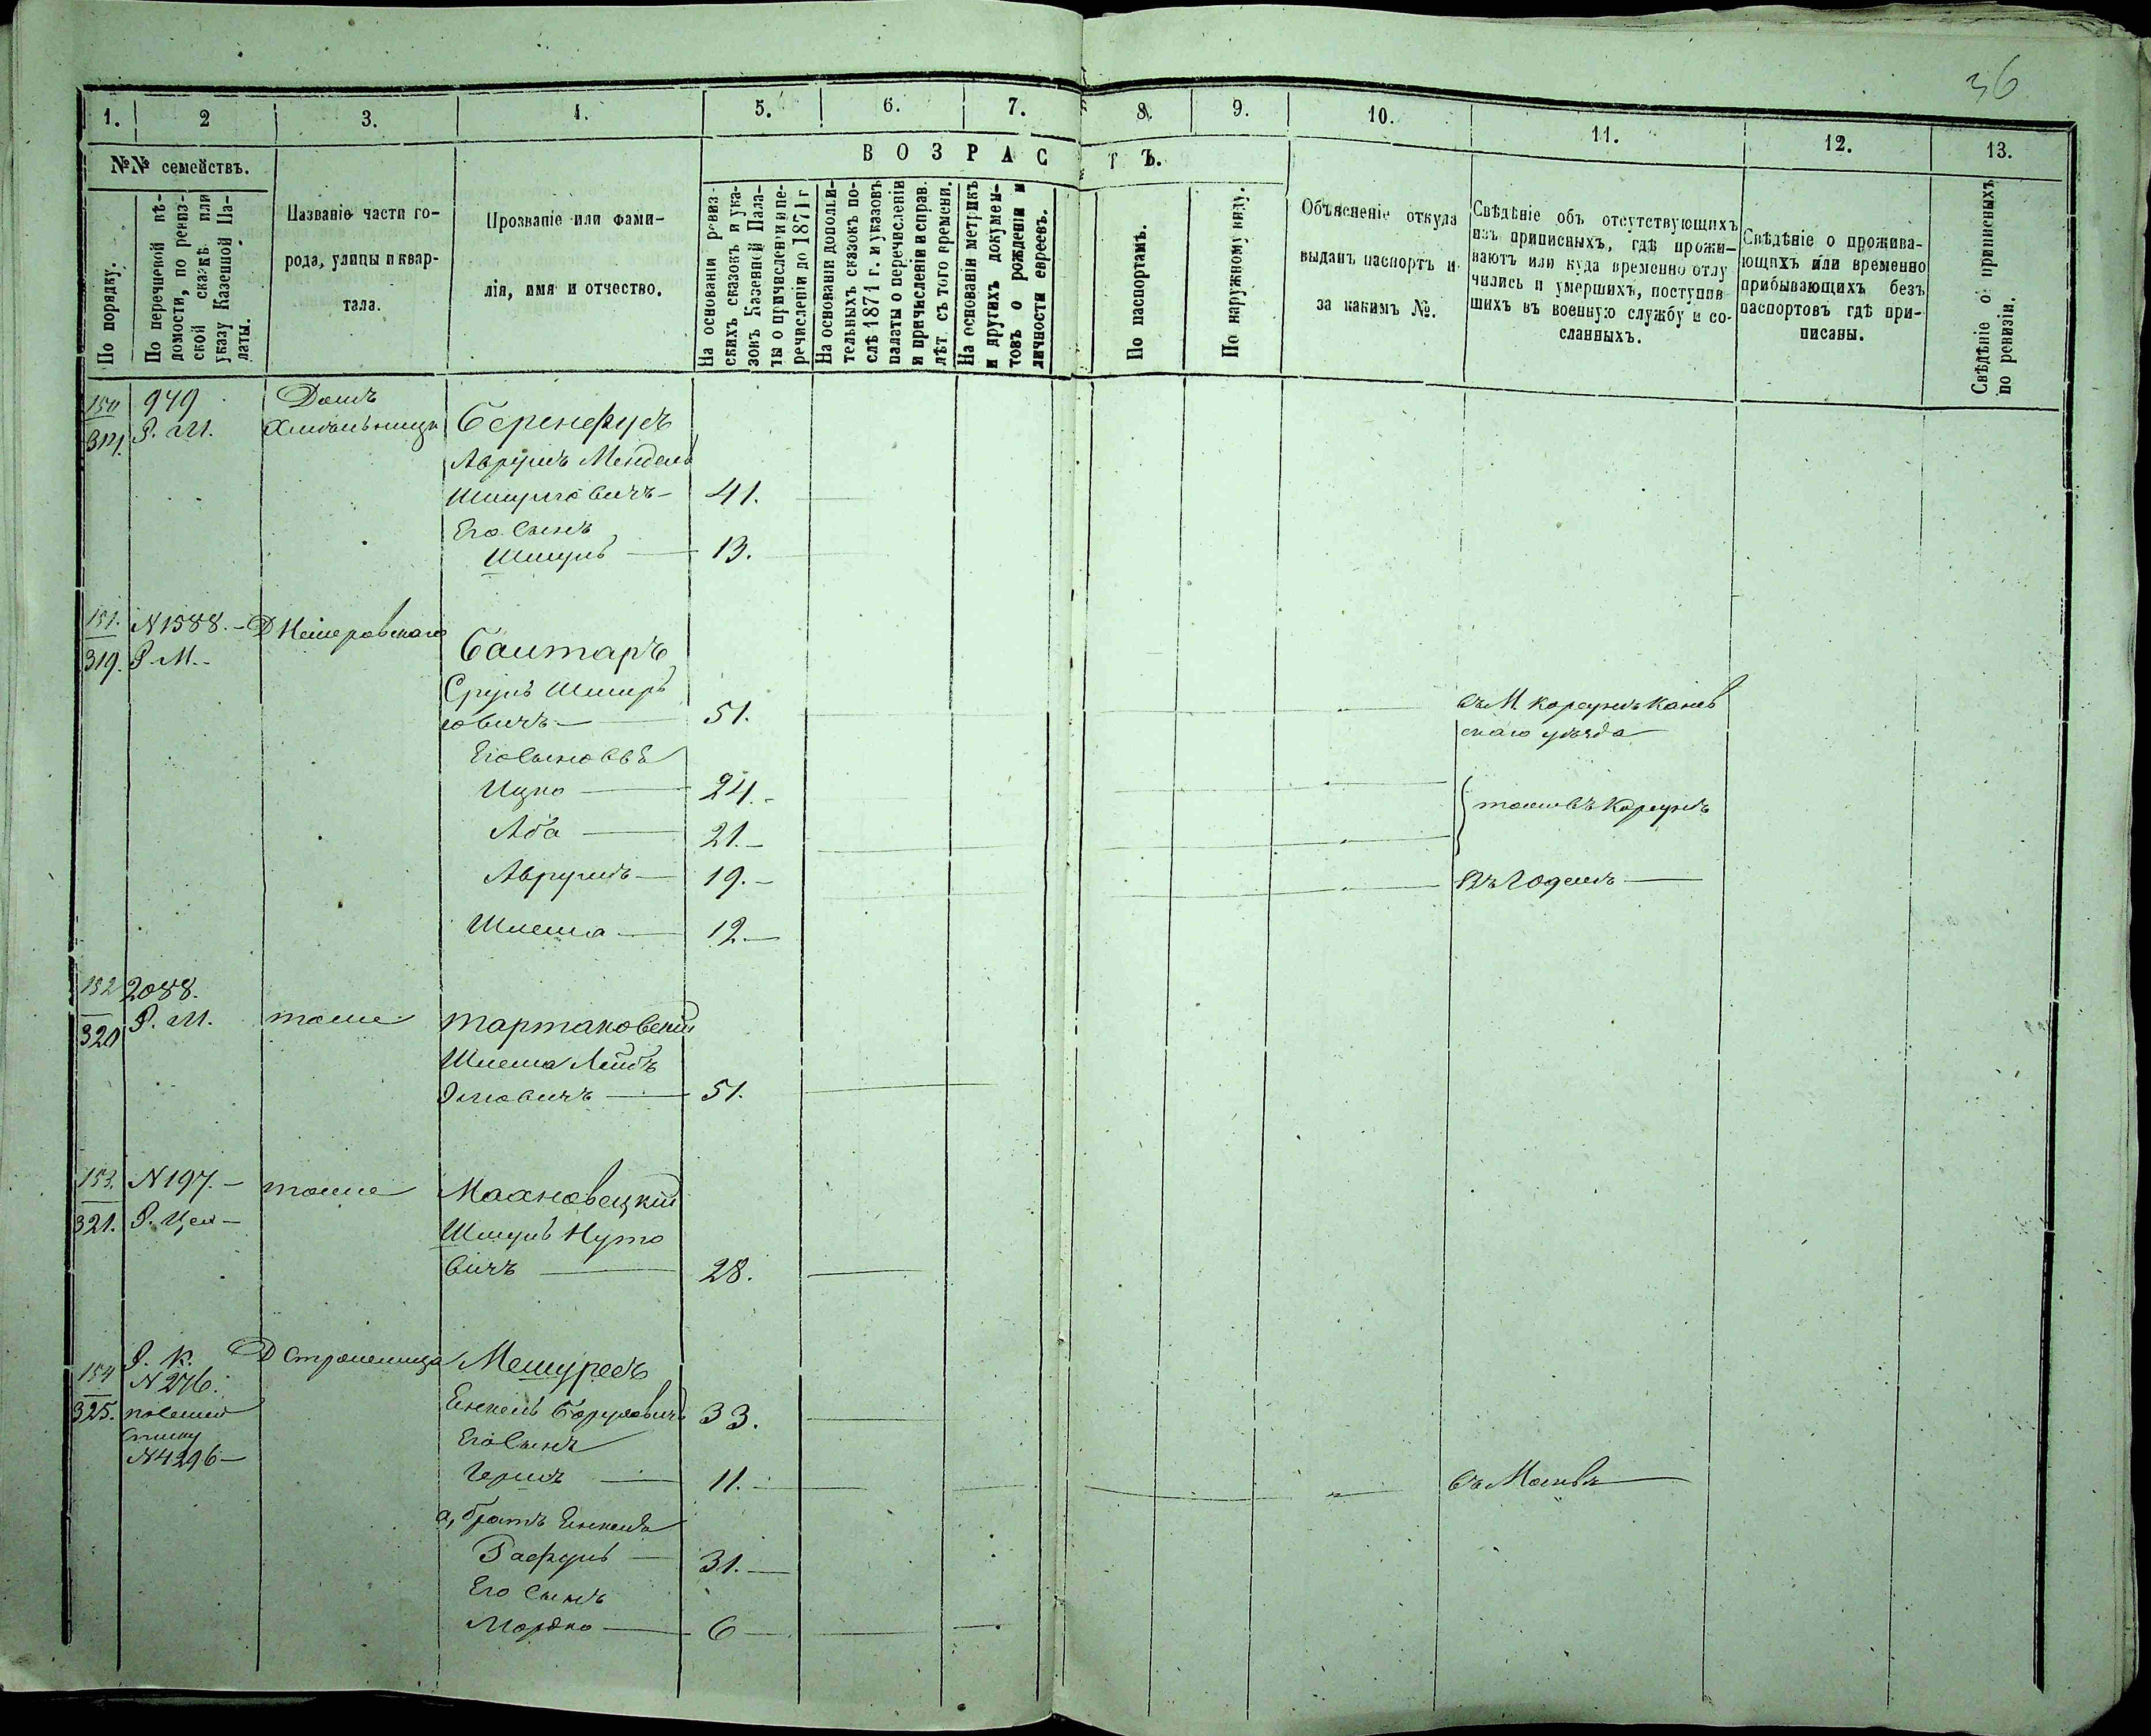 36
1. 2 3. 4. 5. 6. 7. 8. 9. 10. 11. 12. 13.
№№ семействъ.
По порядку.
По перечневой вѣ-
домости, по ревиз-
ской сказкѣ или
указу Казенной Па-
латы.
Названіе части го-
рода, улицы и квар-
тала.
Прозваніе или фами-
лія, имя и отчество.
ВОЗРАСТЪ.
На основаніи ревиз-
скихъ сказокъ и ука-
зокъ Казенной Пала-
ты о причисленіи и пе-
речисленіи до 1871 г
На основаніи дополни-
тельныхъ сказокъ по-
слѣ 1871 г. и указовъ
палаты о перечисленіи
и причисленіи и справ.
лѣт съ того времени.
На основаніи метрикъ
и другихъ докумен-
товъ о рожденіи и
личности евреевъ.
По паспортамъ.
По наружному виду.
Объясненіе откуда
выданъ паспортъ и
за какимъ №.
Свѣдѣніе объ отсутствующихъ
изъ приписныхъ, гдѣ прожи-
ваютъ или куда временно отлу
чились и умершихъ, поступив
шихъ въ военную службу и со-
сланныхъ.
Свѣдѣніе о прожива-
ющихъ или временно
прибывающихъ безъ
паспортовъ гдѣ при-
писаны.
Свѣдѣніе о приписныхъ
по ревизіи.
150 949 Домъ
314. Р. М. Хмѣльницк Беренфусъ
Аврумъ Мендель
Шмулевичъ — 41.
Его сынъ
Шмуль — 13.
151. N1588. — Д
319. Р. М. Бантаръ
Сруль
овичъ — 51. въ М. Корсунѣ Канев
скаго уѣзда
Его сыновья
Ицко — 24. — тоже въ Корсунѣ
Аба — 21. —
Аврумъ — 19. —
Шлема — 12. —
152 2088.
320 Р. М. тоже Тартаковскій
Шлема Лейбъ
51.
153. N197. — тоже Махновецкій
321. Р. Шмуль Нуто
вичъ — 28.
Р. К. Д Мешуредъ
154 N276.
325. Енкель Боруховичъ 33.
списку Его сынъ
N4296 — Гершъ — 11. — въ Москвѣ
а, братъ Енкеля
Рафуль — 31. —
Его сынъ
Мордко — 6 —